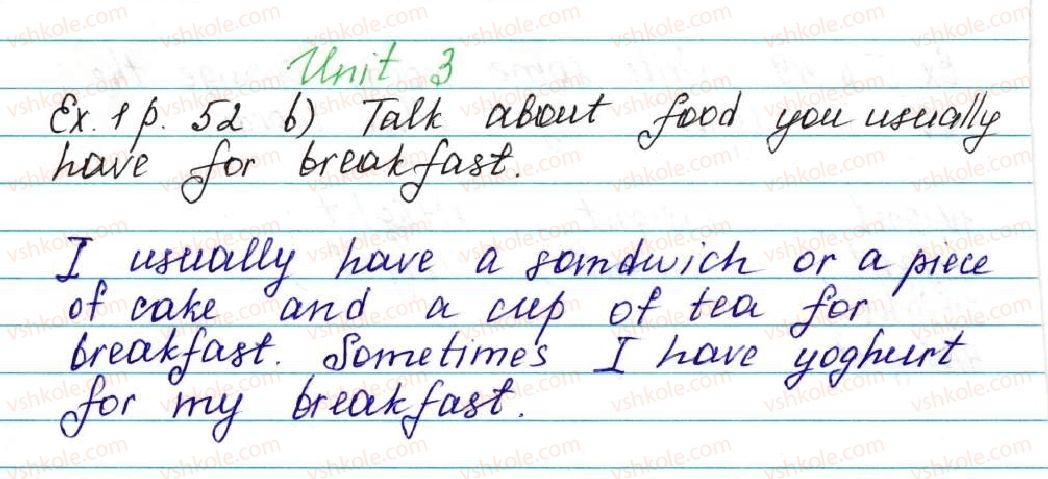 Unit 3
Ex. 1 p. 52 b) Talk about food you usually
have for breakfast.
I usually have a sandwich or a piece
of cake and a cup of tea for
breakfast. Sometimes I have yoghurt
for my breakfast.
vshkole.com